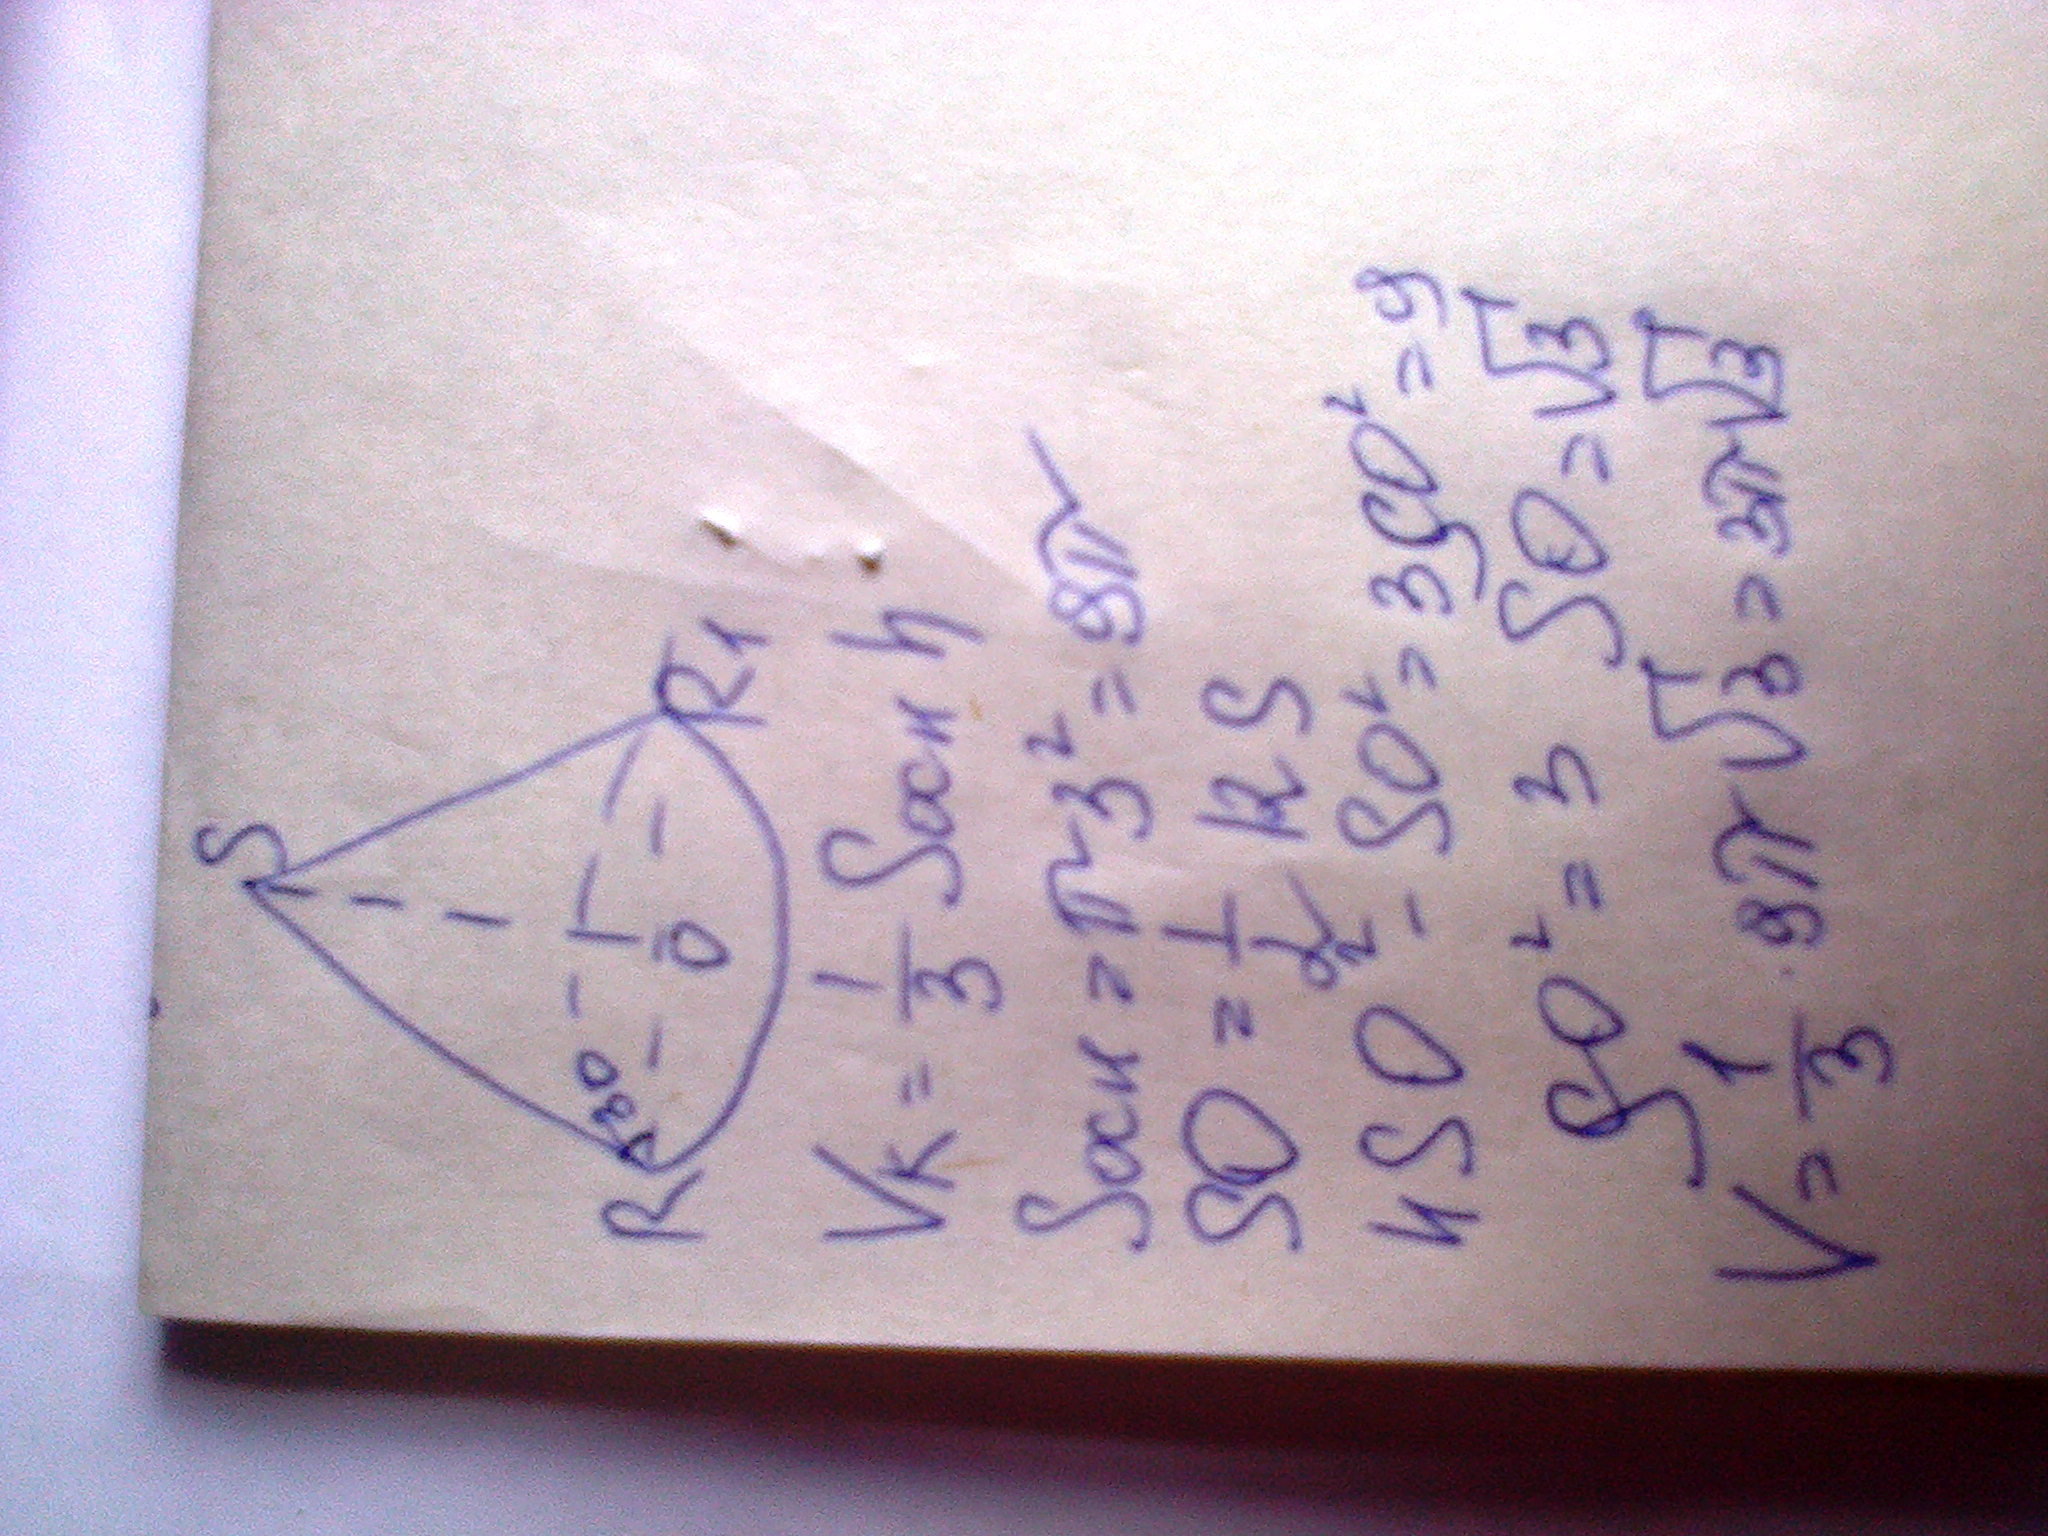 S
30
R
O
R1
Vк = 1/3 Sосн h
Sосн = π 3² = 9π
SO = 1/2 RS
4SO² - SO² = 3 SO² = 9
SO² = 3 SO = √3
V = 1/3 · 9π √3 = 3π √3